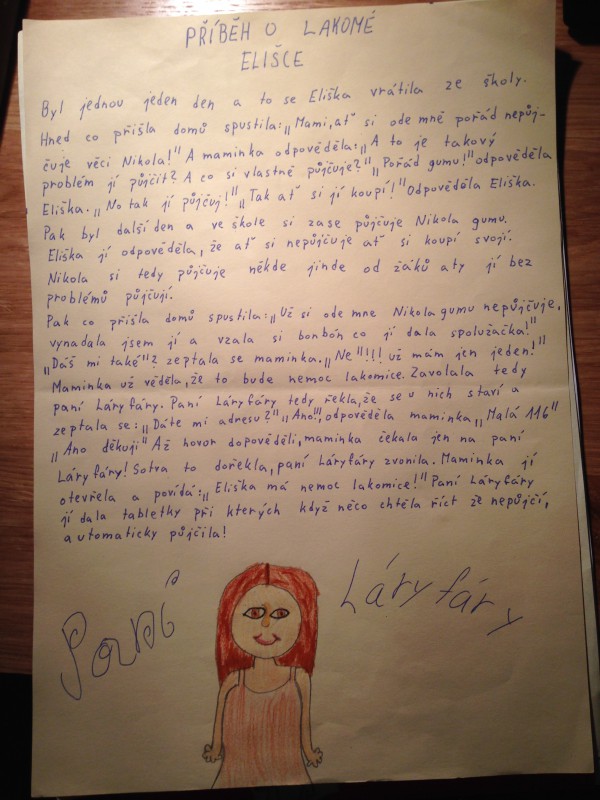 PŘÍBĚH O LAKOMÉ
ELIŠCE
Byl jednou jeden den a to se Eliška vrátila ze školy.
Hned co přišla domů spustila: „Mami, ať si ode mně pořád nepůj-
čuje věci Nikola!" A maminka odpověděla: „A to je takový
problém jí půjčit? A co si vlastně půjčuje?" „Pořád gumu!" odpověděla
Eliška. „No tak jí půjčuj!" „Tak ať si jí koupí!" Odpověděla Eliška.
Pak byl další den a ve škole si zase půjčuje Nikola gumu.
Eliška jí odpověděla, že ať si nepůjčuje ať si koupí svojí.
Nikola si tedy půjčuje někde jinde od žáků a ty jí bez
problémů půjčují.
Pak co přišla domů spustila: „Už si ode mne Nikola gumu nepůjčuje,
vynadala jsem jí a vzala si bonbón co jí dala spolužačka!"
„Dáš mi také"? zeptala se maminka. „Ne"!!! už mám jen jeden!"
Maminka už věděla, že to bude nemoc lakomice. Zavolala tedy
paní Láryfáry. Paní Láryfáry tedy řekla, že se u nich staví a
zeptala se: „Dáte mi adresu?" „Ano!!!, odpověděla maminka „Malá 116"
„Ano děkuji" Až hovor dopověděli, maminka čekala jen na paní
Láryfáry! Sotva to dořekla, paní Láryfáry zvonila. Maminka jí
otevřela a povídá: „Eliška má nemoc lakomice!" Paní Láryfáry
jí dala tabletky při kterých když něco chtěla říct že nepůjčí,
automaticky půjčila!
Paní Láryfáry